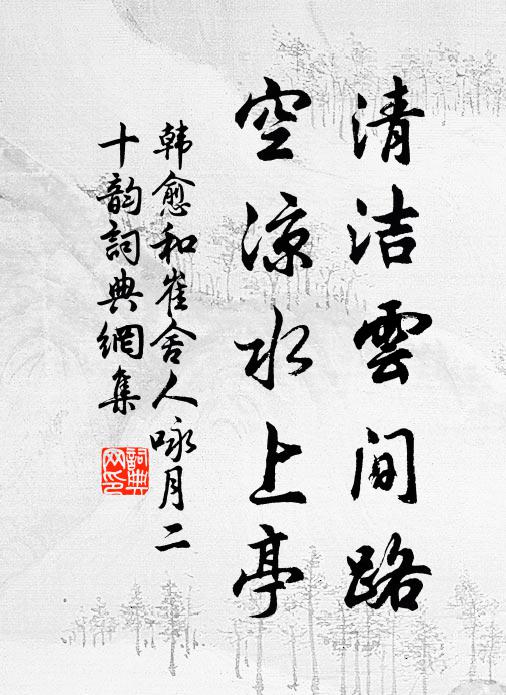 清洁雲间路
空凉水上亭
韩愈和崔舍人咏月二
十韵词典網集
詞典
网印